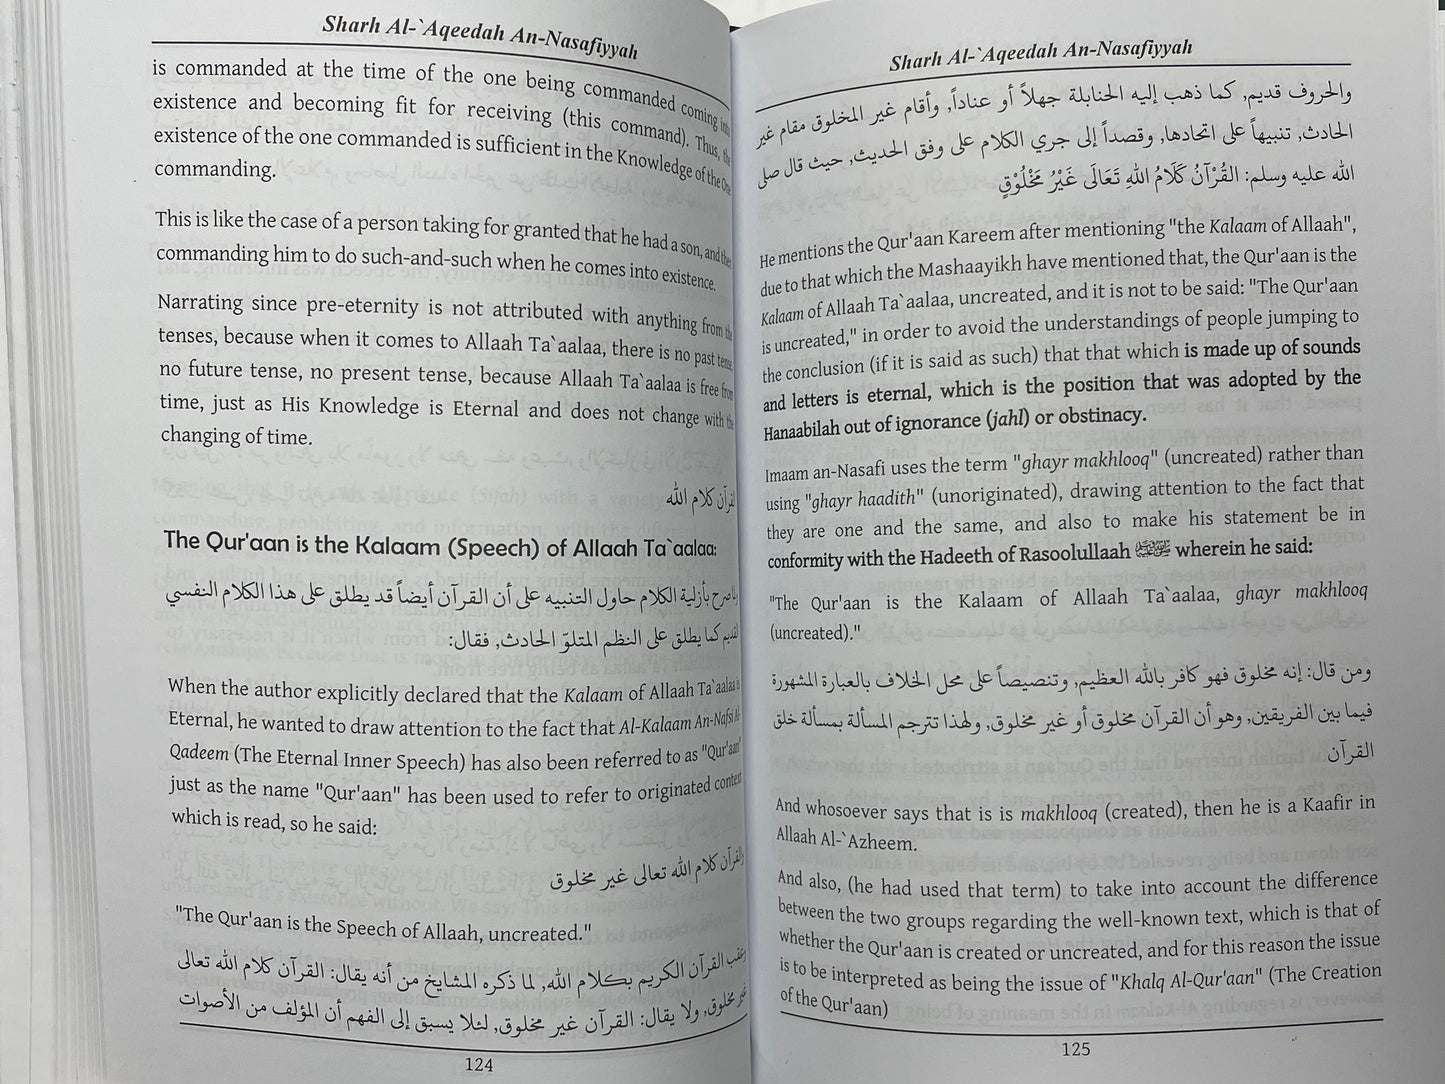 Sharh Al-`Aqeedah An-Nasafiyyah
is commanded at the time of the one being commanded coming into
existence and becoming fit for receiving (this command). Thus, the
existence of the one commanded is sufficient in the Knowledge of the One
commanding.
This is like the case of a person taking for granted that he had a son, and then
commanding him to do such-and-such when he comes into existence.
Narrating since pre-eternity is not attributed with anything from the
tenses, because when it comes to Allaah Ta`aalaa, there is no past tense,
no future tense, no present tense, because Allaah Ta`aalaa is free from
time, just as His Knowledge is Eternal and does not change with the
changing of time.
القرآن كلام الله
The Qur'aan is the Kalaam (Speech) of Allaah Ta`aalaa:
صرح بأزلية الكلام حاول التنبيه على أن القرآن أيضاً قد يطلق على هذا الكلام النفسي
القديم كما يطلق على النظم المتلوّ الحادث, فقال:
When the author explicitly declared that the Kalaam of Allaah Ta`aalaa is
Eternal, he wanted to draw attention to the fact that Al-Kalaam An-Nafsi Al-
Qadeem (The Eternal Inner Speech) has also been referred to as "Qur'aan"
just as the name "Qur'aan" has been used to refer to originated content
which is read, so he said:
والقرآن كلام الله تعالى غير مخلوق
"The Qur'aan is the Speech of Allaah, uncreated."
وعقب القرآن الكريم بكلام الله, لما ذكره المشايخ من أنه يقال: القرآن كلام الله تعالى
غير مخلوق, ولا يقال: القرآن غير مخلوق, لئلا يسبق إلى الفهم أن المؤلف من الأصوات
124
Sharh Al-`Aqeedah An-Nasafiyyah
والحروف قديم, كما ذهب إليه الحنابلة جهلاً أو عناداً, وأقام غير المخلوق مقام غير
الحادث, تنبيهاً على اتحادها, وقصداً إلى جري الكلام على وفق الحديث, حيث قال صلى
الله عليه وسلم: القُرْآنُ كَلَامُ اللهِ تَعَالَى غَيْرُ مَخْلُوْقٍ
He mentions the Qur'aan Kareem after mentioning "the Kalaam of Allaah",
due to that which the Mashaayikh have mentioned that, the Qur'aan is the
Kalaam of Allaah Ta`aalaa, uncreated, and it is not to be said: "The Qur'aan
is uncreated," in order to avoid the understandings of people jumping to
the conclusion (if it is said as such) that that which is made up of sounds
and letters is eternal, which is the position that was adopted by the
Hanaabilah out of ignorance (jahl) or obstinacy.
Imaam an-Nasafi uses the term "ghayr makhlooq" (uncreated) rather than
using "ghayr haadith" (unoriginated), drawing attention to the fact that
they are one and the same, and also to make his statement be in
conformity with the Hadeeth of Rasoolullaah ﷺ wherein he said:
"The Qur'aan is the Kalaam of Allaah Ta`aalaa, ghayr makhlooq
(uncreated)."
ومن قال: إنه مخلوق فهو كافر بالله العظيم, وتنصيصاً على محل الخلاف بالعبارة المشهورة
فيما بين الفريقين, وهو أن القرآن مخلوق أو غير مخلوق, ولهذا تترجم المسألة بمسألة خلق
القرآن
And whosoever says that is is makhlooq (created), then he is a Kaafir in
Allaah Al-`Azheem.
And also, (he had used that term) to take into account the difference
between the two groups regarding the well-known text, which is that of
whether the Qur'aan is created or uncreated, and for this reason the issue
is to be interpreted as being the issue of "Khalq Al-Qur'aan" (The Creation
of the Qur'aan)
125